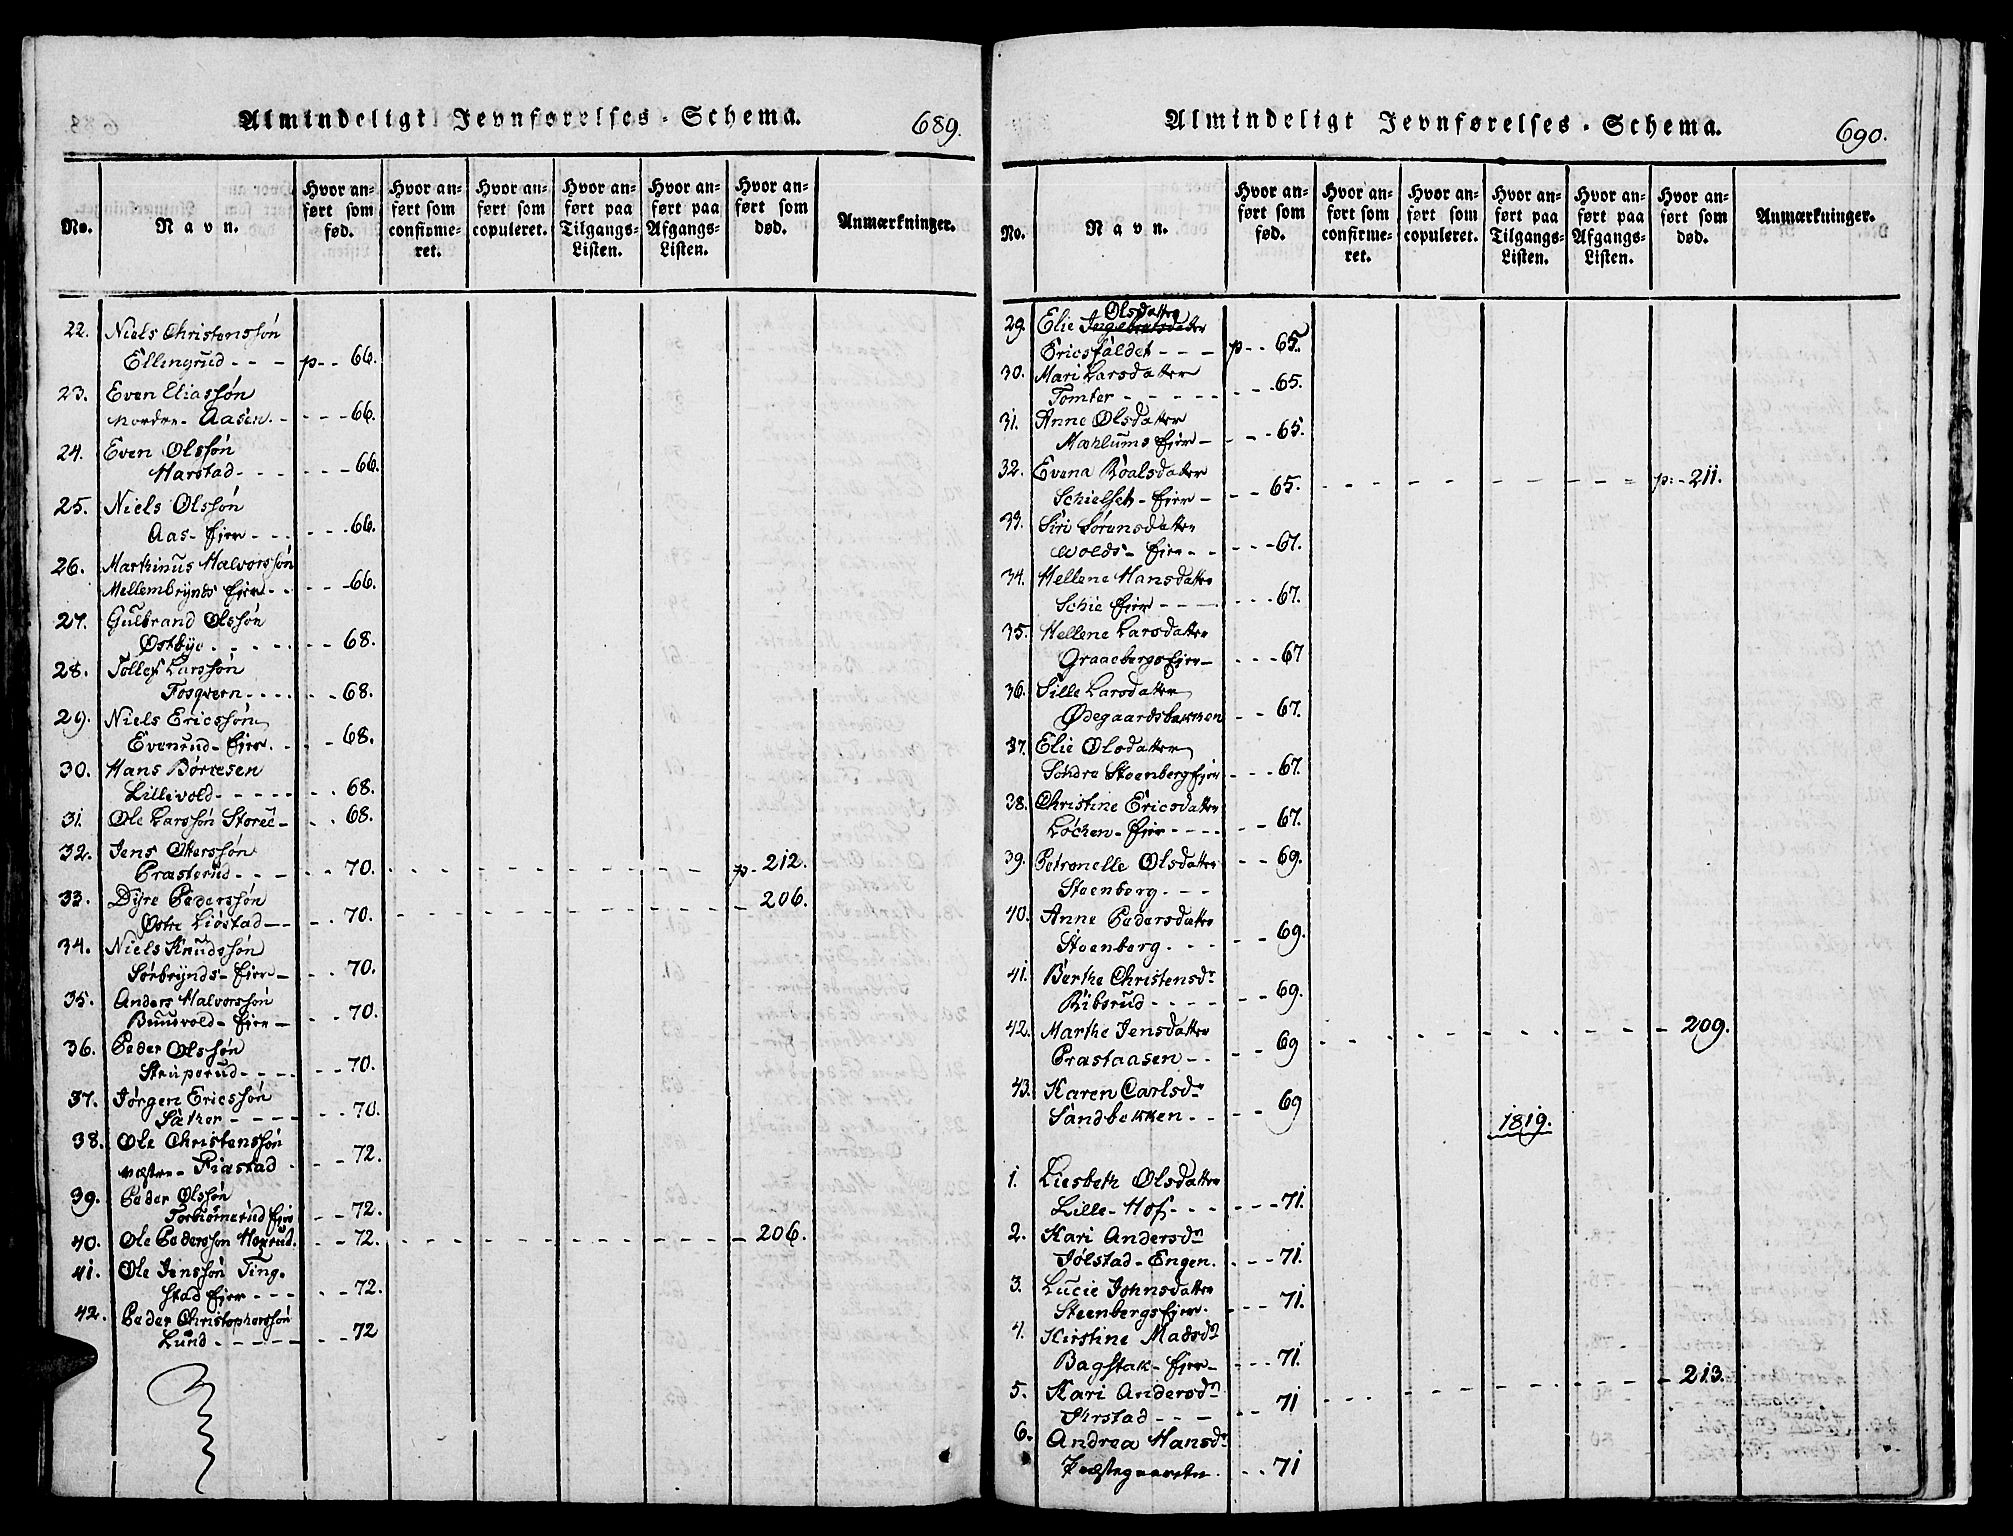 Almindeligt Jevnførelses-Schema. 689.
No. Navn. Hvor anført som fød. Hvor anført som confirmeret. Hvor anført som copuleret. Hvor anført paa Tilgangs-Listen. Hvor anført paa Afgangs-Listen. Hvor anført som død. Anmærkninger.
22. Niels Christenssøn
Ellingrud - - - p - - 66.
23. Even Eliassøn
Nordre - Aasen. - - - - 66.
24. Even Olssøn
Harstad - - - - - - 66.
25. Niels Olssøn
Aas - Eier - - - - - - 66.
26. Marthinus Halvorssøn
Mellembÿnds Eier - - - - - 66.
27. Gulbrand Olssøn
Østbÿe - - - - - - - 68.
28. Tollef Larssøn
Fosqvern - - - - - - 68.
29. Niels Ericssøn
Evenrud - Eier. - - - 68.
30. Hans Børresen
Lillevold - - - - - - - 68.
31. Ole Larssøn Storee - - - 68.
32. Jens Olterssøn
Præsterud - - - - - 70. - - - p - 212.
33. Dÿre Pederssøn
Østre Liøstad - - - - 70. - - - 206.
34. Niels Knudssøn
Sørbrÿnds - Eier - - - 70.
35. Anders Halvorssøn
Buusvold - Eier - - - - 70.
36. Peder Olssøn
Struperud - - - - - - 70.
37. Jørgen Ericssøn
Sæther - - - - - - 70.
38. Ole Christenssøn
Vestre - Fiastad - - - 72.
39. Peder Olssøn
Torbiørnrud Eier - - 72.
40. Ole Pederssøn Hexrud. - - 72. - - - 206.
41. Ole Jenssøn Ting-
stad Eier - - - - - 72.
42. Peder Christopherssøn
Lund - - - - - - - 72
Almindeligt Jevnførelses-Schema. 690.
No. Navn. Hvor anført som fød. Hvor anført som confirmeret. Hvor anført som copuleret. Hvor anført paa Tilgangs-Listen. Hvor anført paa Afgangs-Listen. Hvor anført som død. Anmærkninger.
Olsdatter
29. Elie Ingebretsdatter
Ericsfaldet - - - p - - 65.
30. Mari Larsdatter
Tomter - - - - - - - - 65.
31. Anne Olsdatter
Mæhlums Eier - - - - 65.
32. Evena Roalsdatter
Schielset - Eier - - - 65. - - - p: - 211.
33. Siri Sørensdatter
Wolds - Eier - - - - - 67.
34. Hellene Hansdatter
Schie Eier - - - - - - 67.
35. Hellene Larsdatter
Graaebergs Eier - - - - 67
36. Sille Larsdatter
Ødegaardsbakken - - 67.
37. Elie Olsdatter
Søndre Steenberg Eier - - - 67.
38. Christine Ericsdatter
Løchen - Eier - - - - - - 67.
39. Petronelle Olsdatter - - 69.
Steenberg. - - -
40. Anne Pedersdatter
Steenberg. - - - - - 69.
41. Berthe Christensdr
Riberud - - - - - - 69.
42. Marthe Jensdatter
Præstaasen - - - - 69 - - - 209.
43. Karen Carlsdr
Sandbekken - - - - 69
1819.
1. Liesbeth Olsdatter
Lille - Hof - - - - - - 71.
2. Kari Andersdr
Jølstad - Engen. - - - 71.
3. Lucie Johnsdatter
Steenbergs Eier. - - - 71.
4. Kirstine Madsdr
Bagstak - Eier - - - - 71.
5. Kari Andersdr
- - - - - 71 - - - 213.
6. Andrea Hansdr
Præstegaarden. - - 71